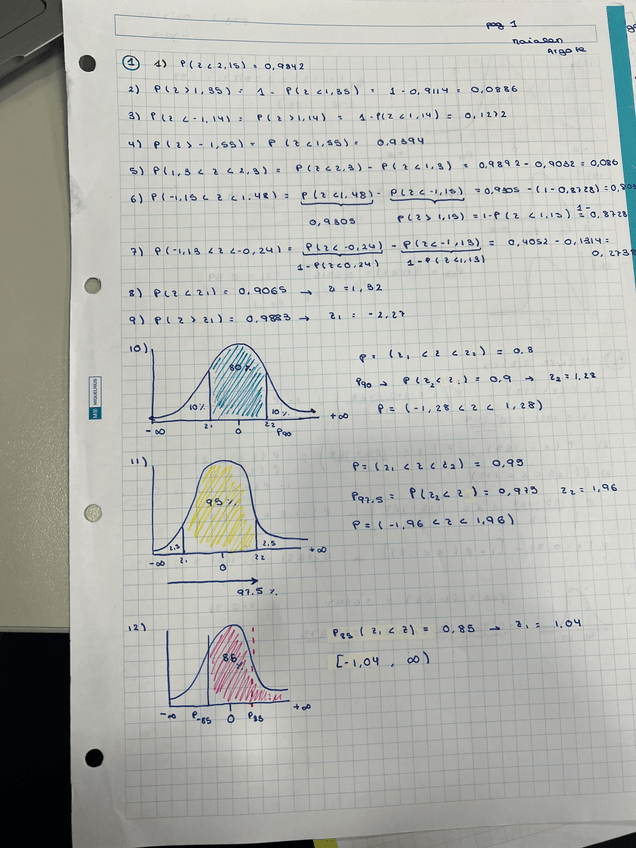 pag 1
Naialen
Argote
① 1) P(z<2,15) = 0,9842
2) P(z>1,35) = 1 - P(z<1,35) = 1 - 0,9114 = 0,0886
3) P(z<-1,14) = P(z>1,14) = 1-P(z<1,14) = 0,1272
4) P(z>-1,55) = P(z<1,55) = 0,9394
5) P(1,3<z<2,3) = P(z<2,3) - P(z<1,3) = 0,9892 - 0,9032 = 0,086
6) P(-1,15<z<1,48) = P(z<1,48) - P(z<-1,15) = 0,9305 - (1-0,8728) = 0,803
0,9305 P(z>1,15) = 1-P(z<1,15) = 1-0,8728
7) P(-1,13<z<-0,24) = P(z<-0,24) - P(z<-1,13) = 0,4052 - 0,1314 =
0,2738
1-P(z<0,24) 1-P(z<1,13)
8) P(z<z1) = 0,9065 → z = 1,32
9) P(z>z1) = 0,9883 → z1 = -2,27
10) P = (z1 < z < z2) = 0,8
80%
P90 → P(z2<z) = 0,9 → z2 = 1,28
10% 10%
P = (-1,28 < z < 1,28)
-∞ z1 0 z2 P90 +∞
11) P = (z1 < z < z2) = 0,95
95%
P97,5 = P(z2<z) = 0,975 z2 = 1,96
P = (-1,96 < z < 1,96)
2,5 2,5
-∞ z1 0 z2 +∞
97.5%
12) P85 (z1<z) = 0,85 → z1 = 1,04
85%
[-1,04 , ∞)
-∞ P-85 0 P85 +∞
MIQUELRIUS